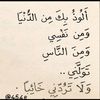 أَلُوذُ بِكَ مِن الدُّنْيَا
وَمِن نَفْسِي
وَمِن النَّاسِ
تَوَلَّنِي ..
وَلَا تَرُدَّنِي خَائِبًا